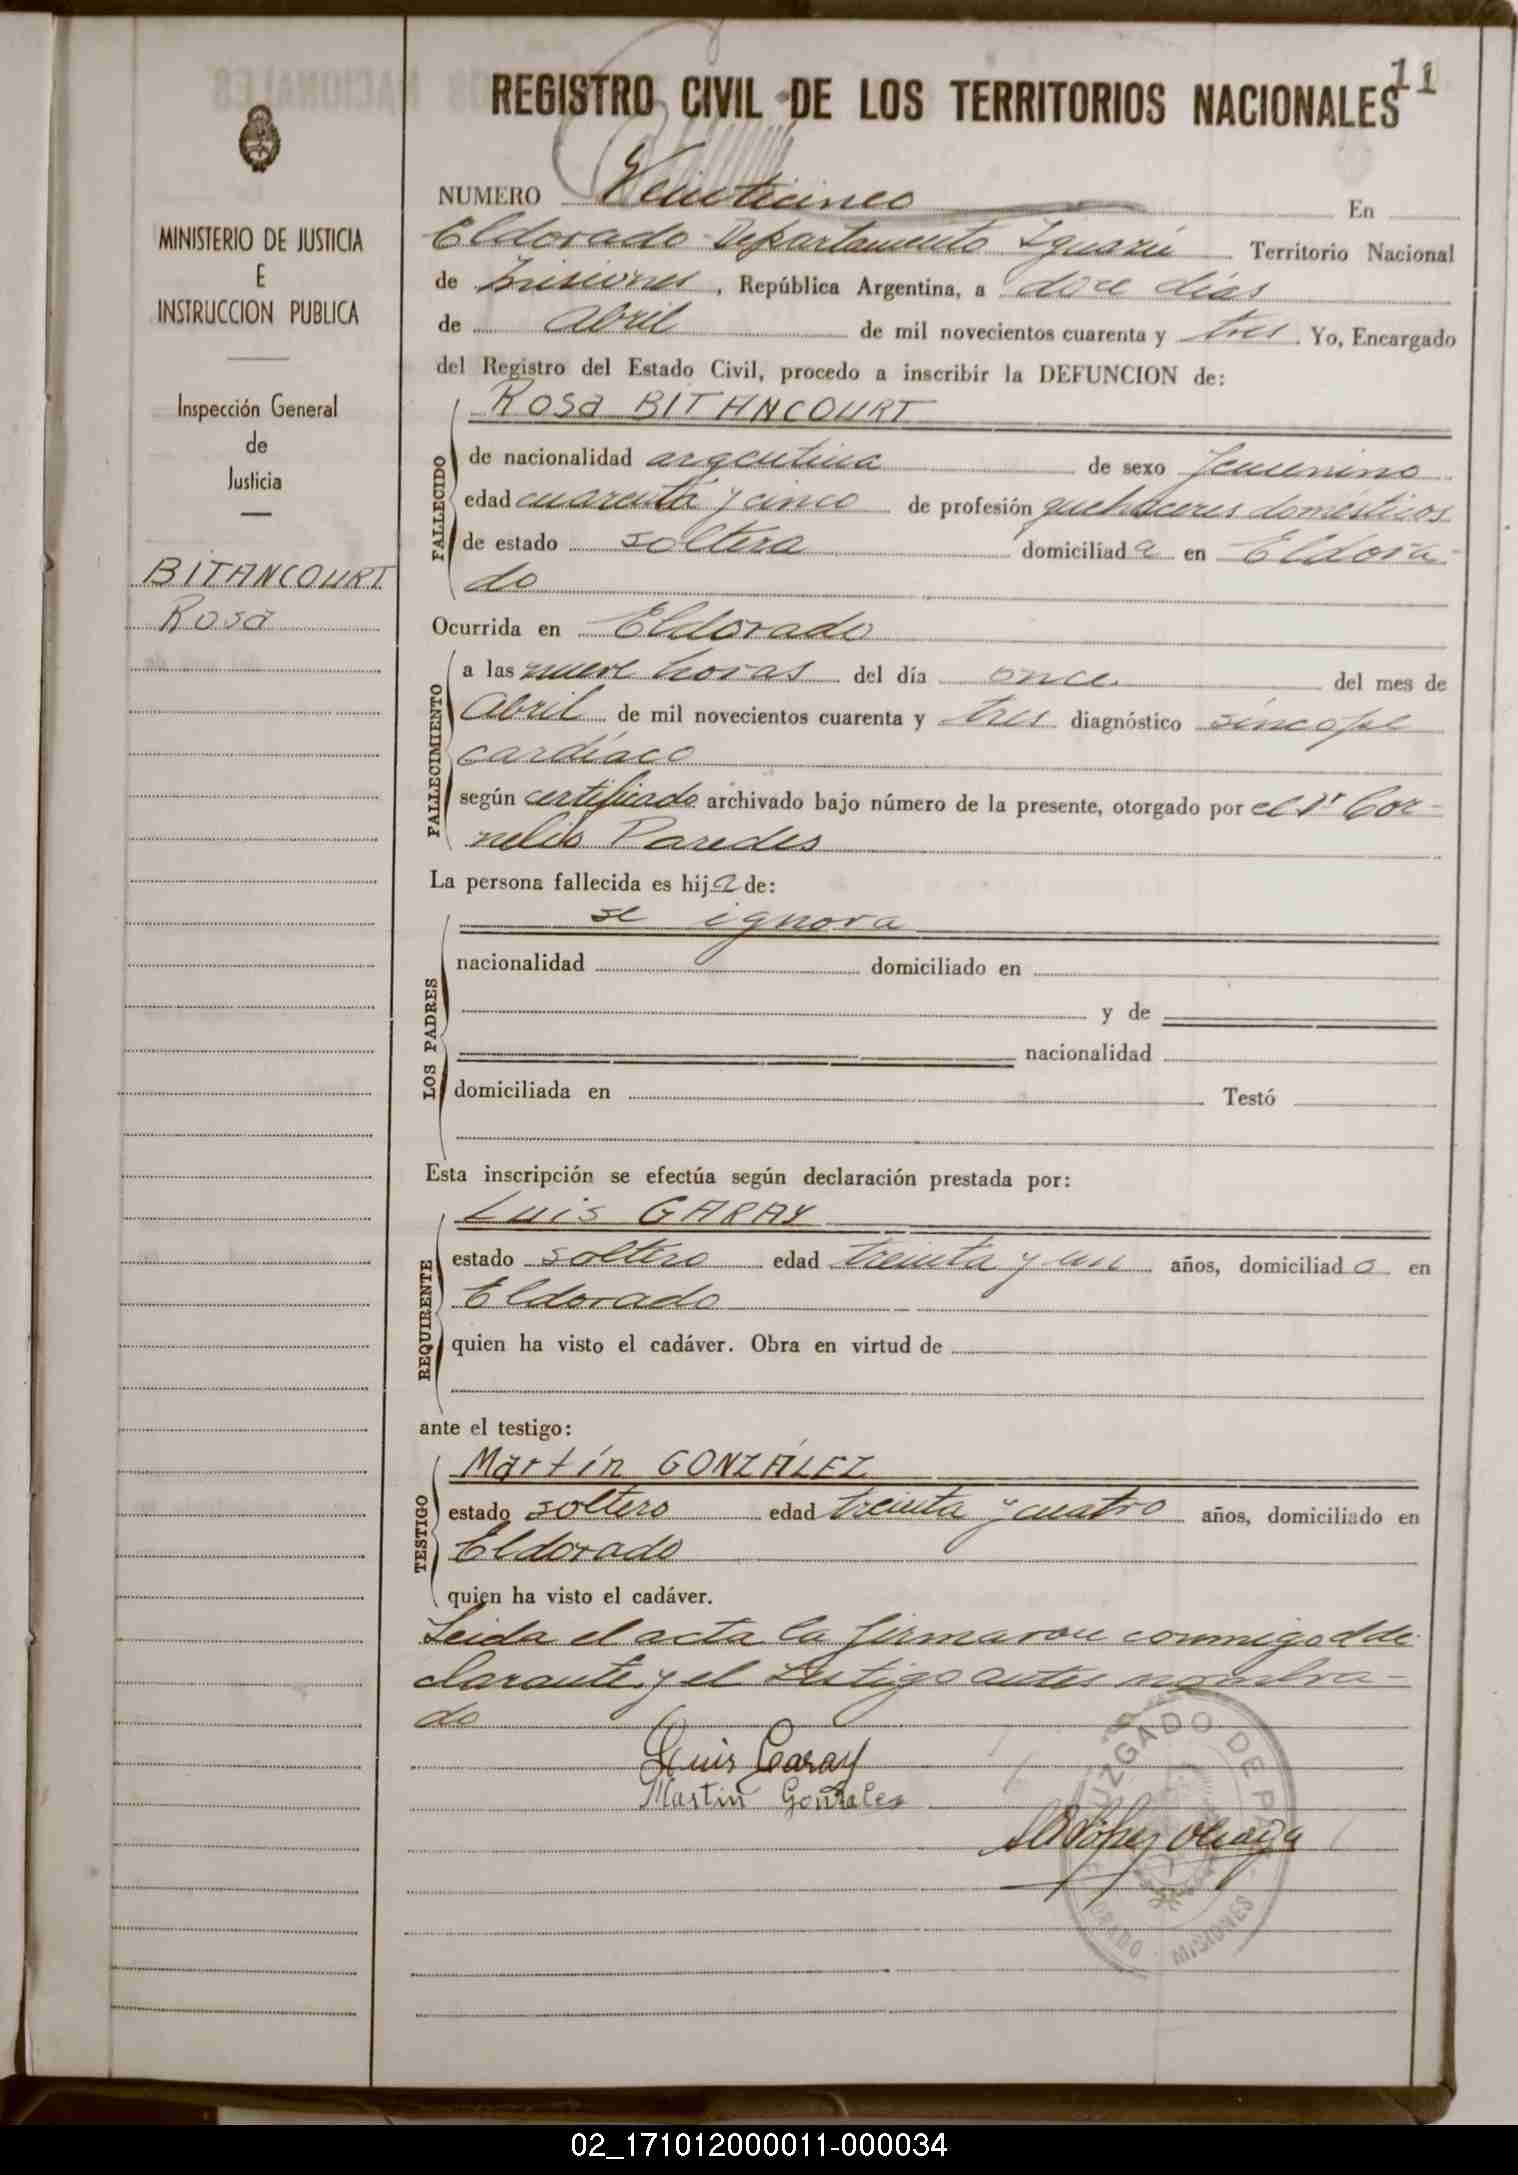 11
REGISTRO CIVIL DE LOS TERRITORIOS NACIONALES
MINISTERIO DE JUSTICIA
E
INSTRUCCION PUBLICA
Inspección General
de
Justicia
BITANCOURT
Rosa
NUMERO Veinticinco En
Eldorado Departamento Iguazú Territorio Nacional
de Misiones, República Argentina, a doce días
de Abril de mil novecientos cuarenta y tres. Yo, Encargado
del Registro del Estado Civil, procedo a inscribir la DEFUNCION de:
Rosa BITANCOURT
FALLECIDO
de nacionalidad argentina de sexo femenino
edad cuarenta y cinco de profesión quehaceres domésticos
de estado soltera domiciliada en Eldora-
do
Ocurrida en Eldorado
FALLECIMIENTO
a las nueve horas del día once del mes de
Abril de mil novecientos cuarenta y tres diagnóstico síncope
cardíaco
según certificado archivado bajo número de la presente, otorgado por el Dr Cor-
nelio Paredes
La persona fallecida es hija de:
LOS PADRES
se ignora
nacionalidad domiciliado en
y de
nacionalidad
domiciliada en Testó
Esta inscripción se efectúa según declaración prestada por:
REQUIRENTE
Luis GARAY
estado soltero edad treinta y un años, domiciliado en
Eldorado
quien ha visto el cadáver. Obra en virtud de
ante el testigo:
TESTIGO
Martín GONZÁLEZ
estado soltero edad treinta y cuatro años, domiciliado en
Eldorado
quien ha visto el cadáver.
Leida el acta la firmaron conmigo el de-
clarante y el testigo antes nombra-
do
Luis Garay
Martin Gonzales
JUZGADO DE PAZ
ELDORADO - MISIONES
02_171012000011-000034